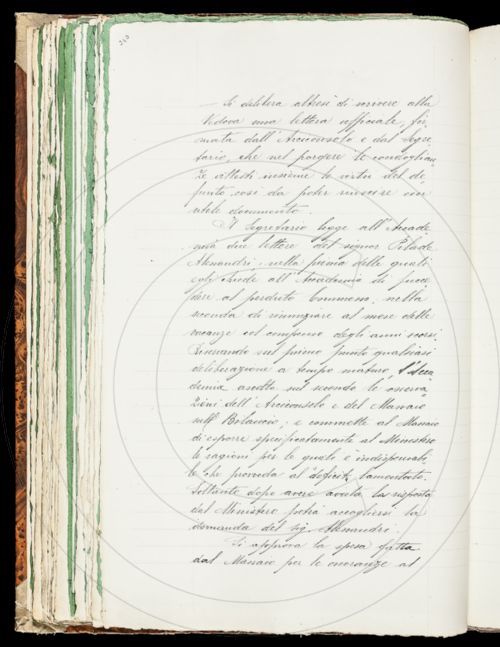 — Si delibera altresì di scrivere alla
Vedova una lettera ufficiale, fir
mata dall'Arciconsolo e dal Segre
tario, che nel porgere le condoglian
ze attesti insieme le virtù del de
funto così da poter riuscire con
utile documento.
Il Segretario legge all'Accade
mia due lettere del signor Pilade
Alessandri: nella prima delle quali
egli chiede all'Accademia di
dire al perduto compenso, nella
seconda di rinunziare al mese delle
vacanze col compenso degli anni scorsi.
Riservando sul primo punto qualsiasi
deliberazione a tempo maturo, l'Acca
demia ascolta sul secondo le osserva
zioni dell'Arciconsolo e del Massaio
sul Bilancio; e commette al Massaio
di esporre specificatamente al Ministero
le ragioni per le quali è indispensabi
le che provveda al deficit lamentato.
Soltanto dopo avere avuta la risposta
dal Ministero potrà accogliersi la
domanda del sig. Alessandri.
Si approva la spesa fatta
dal Massaio per le onoranze al